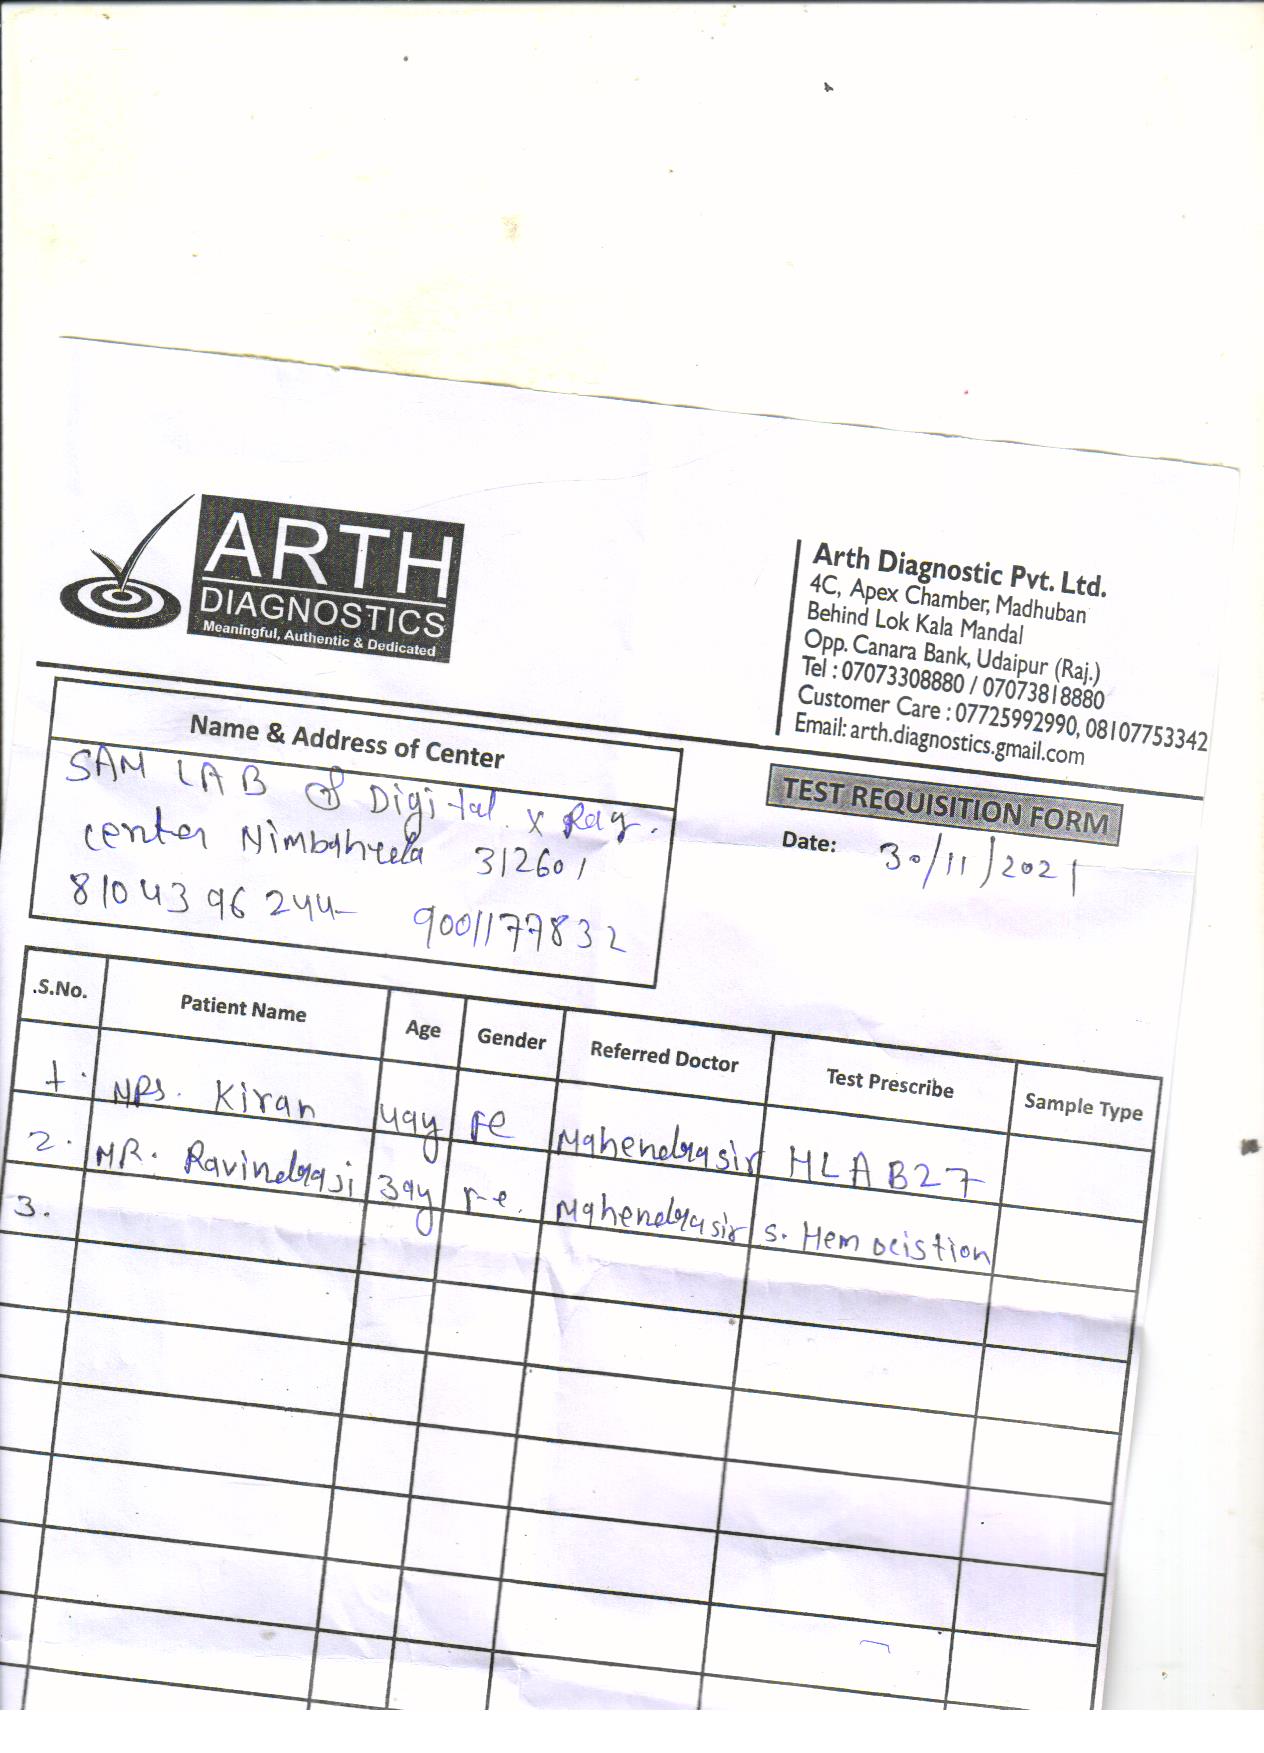 ARTH
DIAGNOSTICS
Meaningful, Authentic & Dedicated
Arth Diagnostic Pvt. Ltd.
4C, Apex Chamber, Madhuban
Behind Lok Kala Mandal
Opp. Canara Bank, Udaipur (Raj.)
Tel : 07073308880 / 07073818880
Customer Care : 07725992990, 08107753342
Email: arth.diagnostics.gmail.com
Name & Address of Center
SAM LAB Digital X Ray.
center Nimbaheda 312601
8104396244 9001177832
TEST REQUISITION FORM
Date: 30/11/2021
.S.No. Patient Name Age Gender Referred Doctor Test Prescribe Sample Type
1. MRS. Kiran 44y FE Mahendrasir HLA B27
2. MR. Ravindraji 39y Fe. Mahendrasir S. Hem
3.